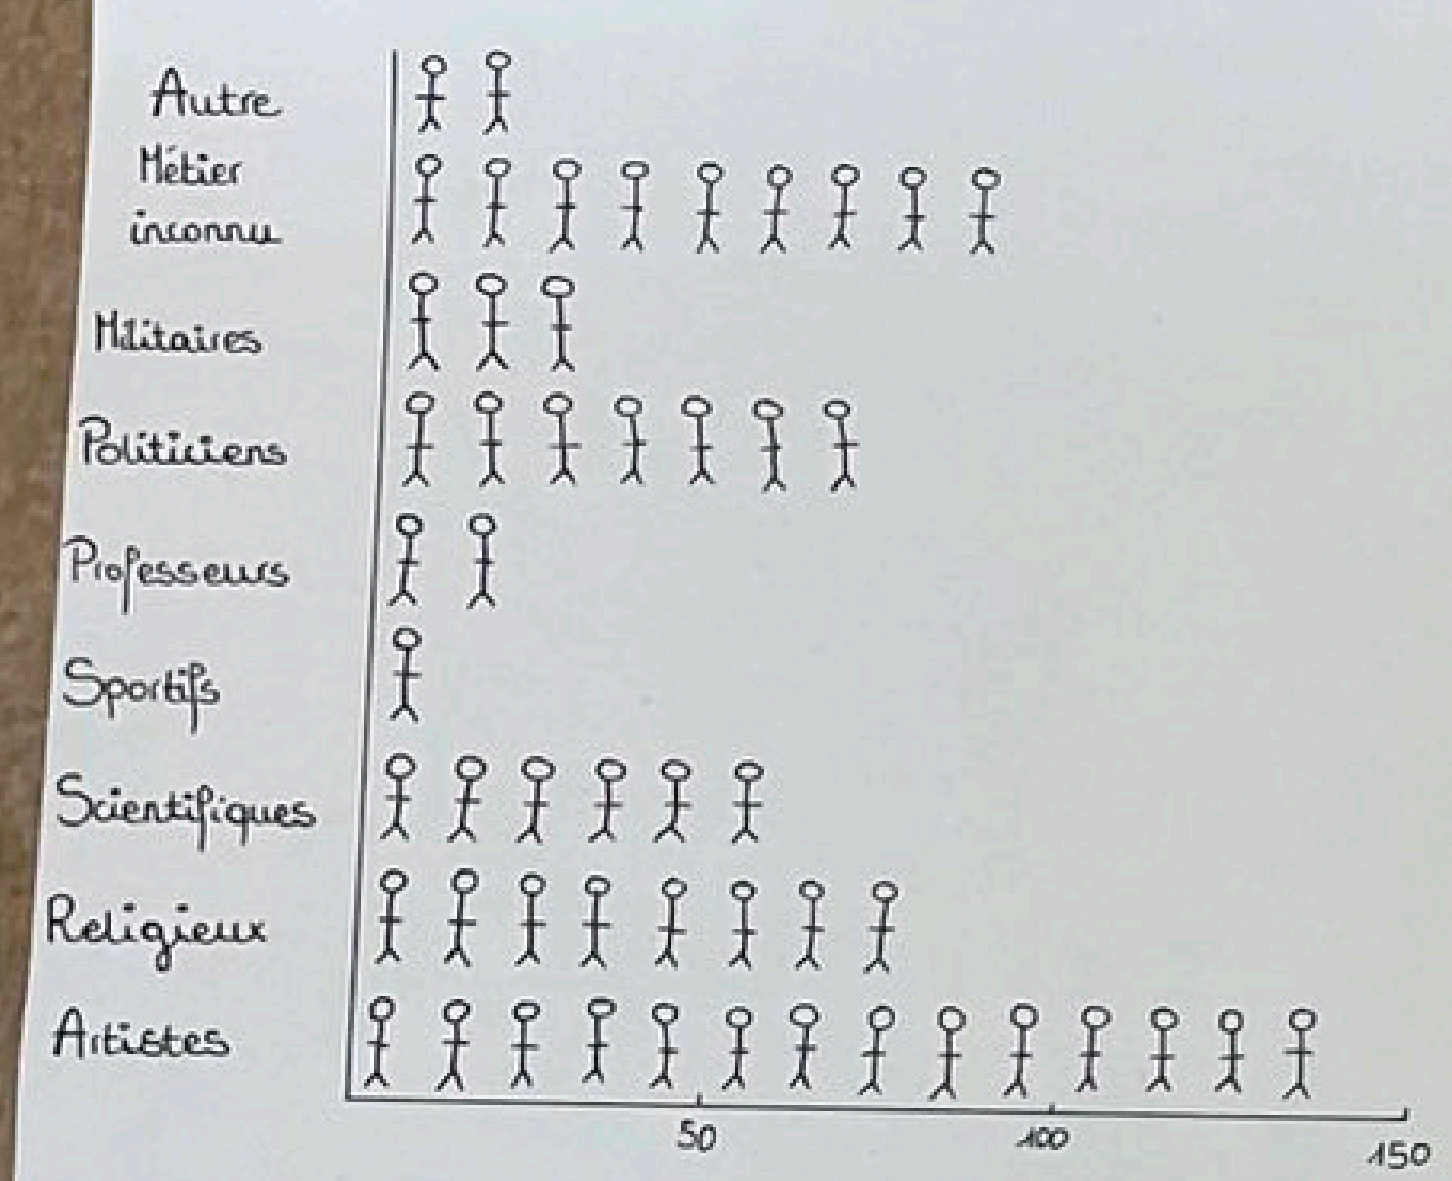 Autre
Métier
inconnu
Militaires
Politiciens
Professeurs
Sportifs
Scientifiques
Religieux
Artistes
50
100
150